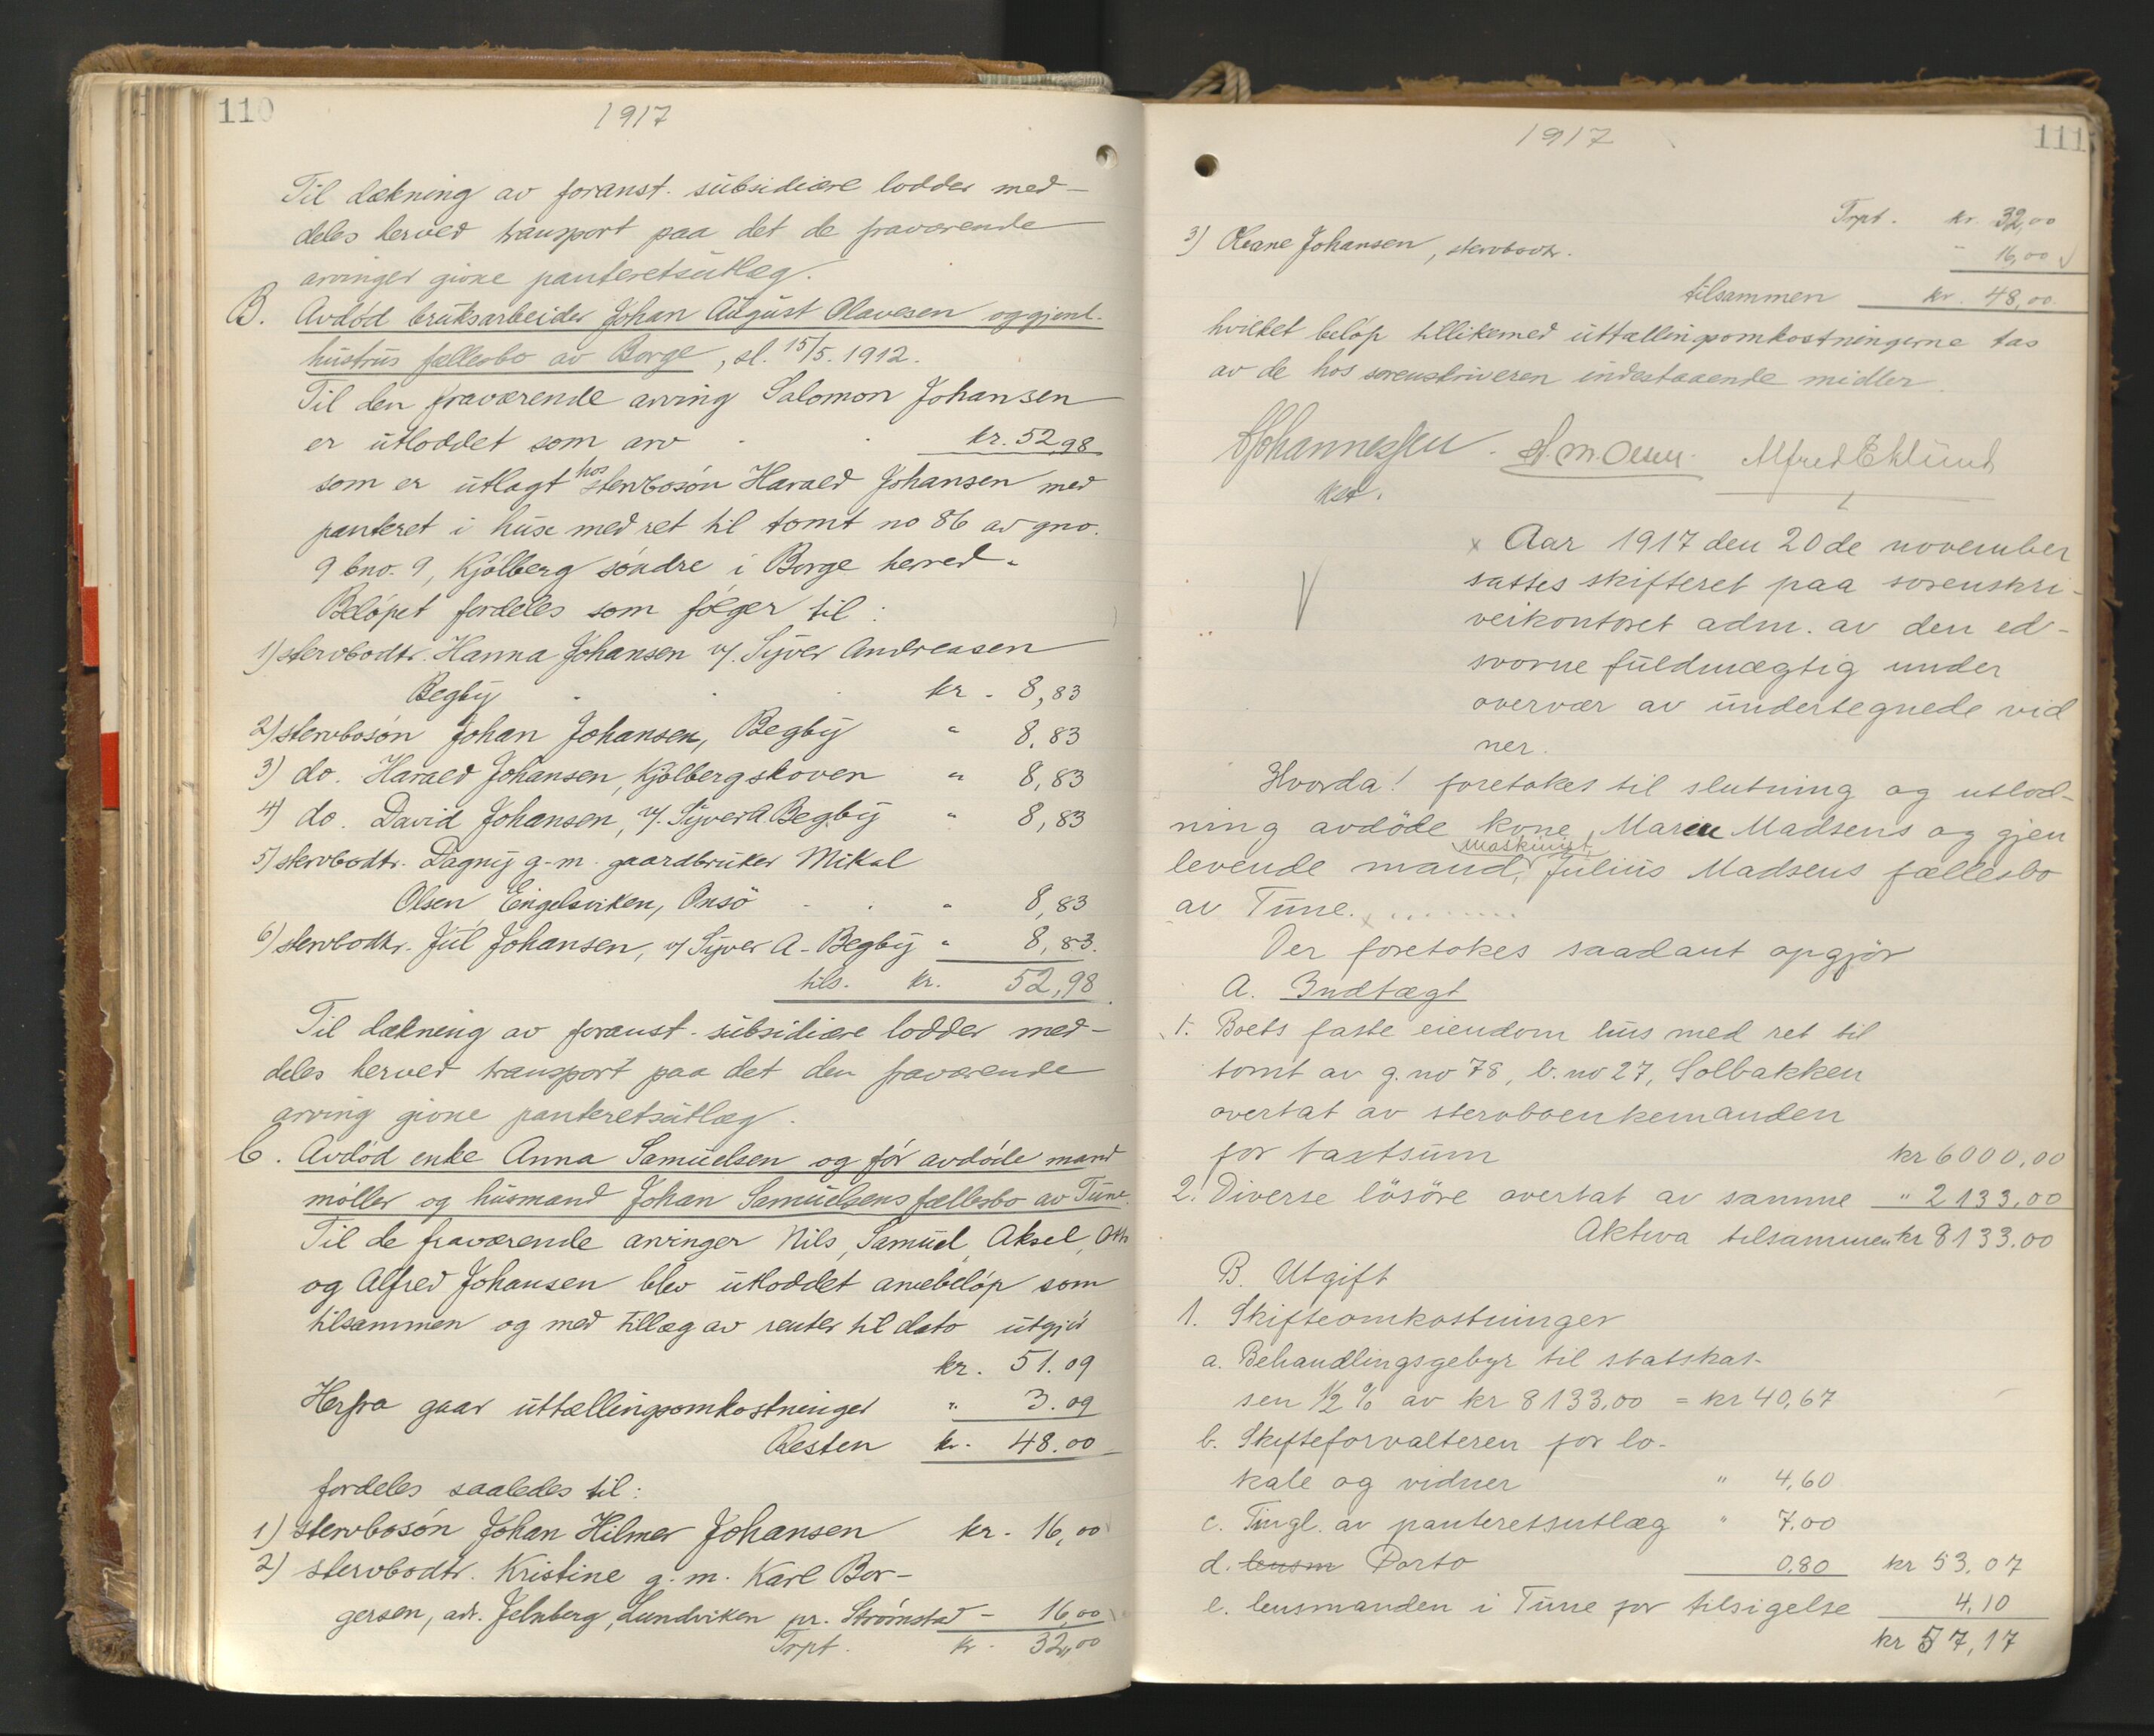 110
1917
Til dækning av foranst. subsidiære lodder med-
deles herved transport paa det de fraværende
arvinger givne panteretsutlæg.
B. Avdød bruksarbeider Johan August Olavesen og gjenl.
hustrus fællesbo av Borge, sl. 15/5. 1912.
Til den fraværende arving Salomon Johansen
er utloddet som arv kr. 52,98
som er utlagt hos stervbosøn Harald Johansen med
panteret i huse med ret til tomt no 86 av gno.
9 bno. 9, Kjølberg søndre i Borge herred.
Beløpet fordeles som følger til:
1) stervbodtr. Hanna Johansen v/. Syver Andreasen
Begby kr. 8,83
2) stervbosøn Johan Johansen, Begby " 8,83
3) do. Harald Johansen, Kjølbergskoven " 8,83
4) do. David Johansen, v/. Syver A Begby " 8,83
5) stervbodtr. Dagny g.m. gaardbruker Mikal
Olsen, Engelsviken, Onsö " 8,83
6) stervbodtr. Jul Johansen, v/ Syver A. Begby " 8,83.
tils. kr. 52,98
Til dækning av foranst. subsidiære lodder med-
deles herved transport paa det den fraværende
arving givne panteretsutlæg.
C. Avdød enke Anna Samuelsen og før avdøde mand
møller og husmand Johan Samuelsens fællesbo av Tune.
Til de fraværende arvinger Nils, Samuel, Aksel,
og Alfred Johansen blev utloddet arvebeløp som
tilsammen og med tillæg av renter til dato utgjør
kr. 51.09
Herfra gaar uttællingsomkostninger " 3.09
Resten kr. 48.00
fordeles saaledes til:
1) stervbosøn Johan Hilmer Johansen kr. 16,00
2) stervbodtr. Kristine g.m. Karl Bor-
gersen, adr. Lundviken pr. Strømstad - 16,00
Trpt. kr. 32,00
1917
111
Trpt. kr. 32,00
3) Oleane Johansen, stervbodtr. " 16,00
tilsammen kr. 48,00
hvilket beløp tillikemed uttællingsomkostningerne tas
av de hos sorenskriveren indestaaende midler.
Johannessen. H.M. Olsen. Alfred Eklund
kst.
x Aar 1917 den 20de november
sattes skifteret paa sorenskri-
verkontoret adm. av den ed-
svorne fuldmægtig under
overvær av undertegnede vid
ner.
Hvorda! foretokes til slutning og utlod-
ning avdöde kone, Maren Madsens og gjen
maskinist
levende mand, Julius Madsens fællesbo
av Tune.
Der foretokes saadant opgjör
A. Indtægt
1. Boets faste eiendom hus med ret til
tomt av g.no 78, b.no 27, Solbakken
overtat av stervboenkemanden
for taxtsum kr 6000,00
2. Diverse lösöre overtat av samme " 2133,00
Aktiva tilsammen kr 8133.00
B. Utgift
1. Skifteomkostninger
a. Behandlingsgebyr til statskas-
sen 1/2 % av kr 8133,00 = kr 40,67
b. Skifteforvalteren for lo-
kale og vidner " 4,60
c. Tingl. av panteretsutlæg " 7.00
d. lensm Porto 0,80 kr 53,07
e. lensmanden i Tune for tilsigelse 4,10
kr 57,17